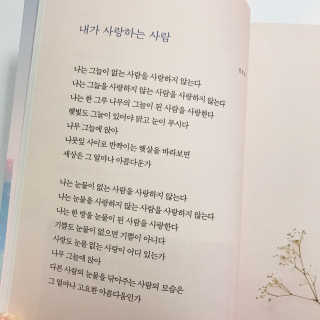 내가 사랑하는 사람
나는 그늘이 없는 사람을 사랑하지 않는다
나는 그늘을 사랑하지 않는 사람을 사랑하지 않는다
나는 한 그루 나무의 그늘이 된 사람을 사랑한다
햇빛도 그늘이 있어야 맑고 눈이 부시다
나무 그늘에 앉아
나뭇잎 사이로 반짝이는 햇살을 바라보면
세상은 그 얼마나 아름다운가
나는 눈물이 없는 사람을 사랑하지 않는다
나는 눈물을 사랑하지 않는 사람을 사랑하지 않는다
나는 한 방울 눈물이 된 사람을 사랑한다
기쁨도 눈물이 없으면 기쁨이 아니다
사랑도 눈물 없는 사랑이 어디 있는가
나무 그늘에 앉아
다른 사람의 눈물을 닦아주는 사람의 모습은
그 얼마나 고요한 아름다움인가